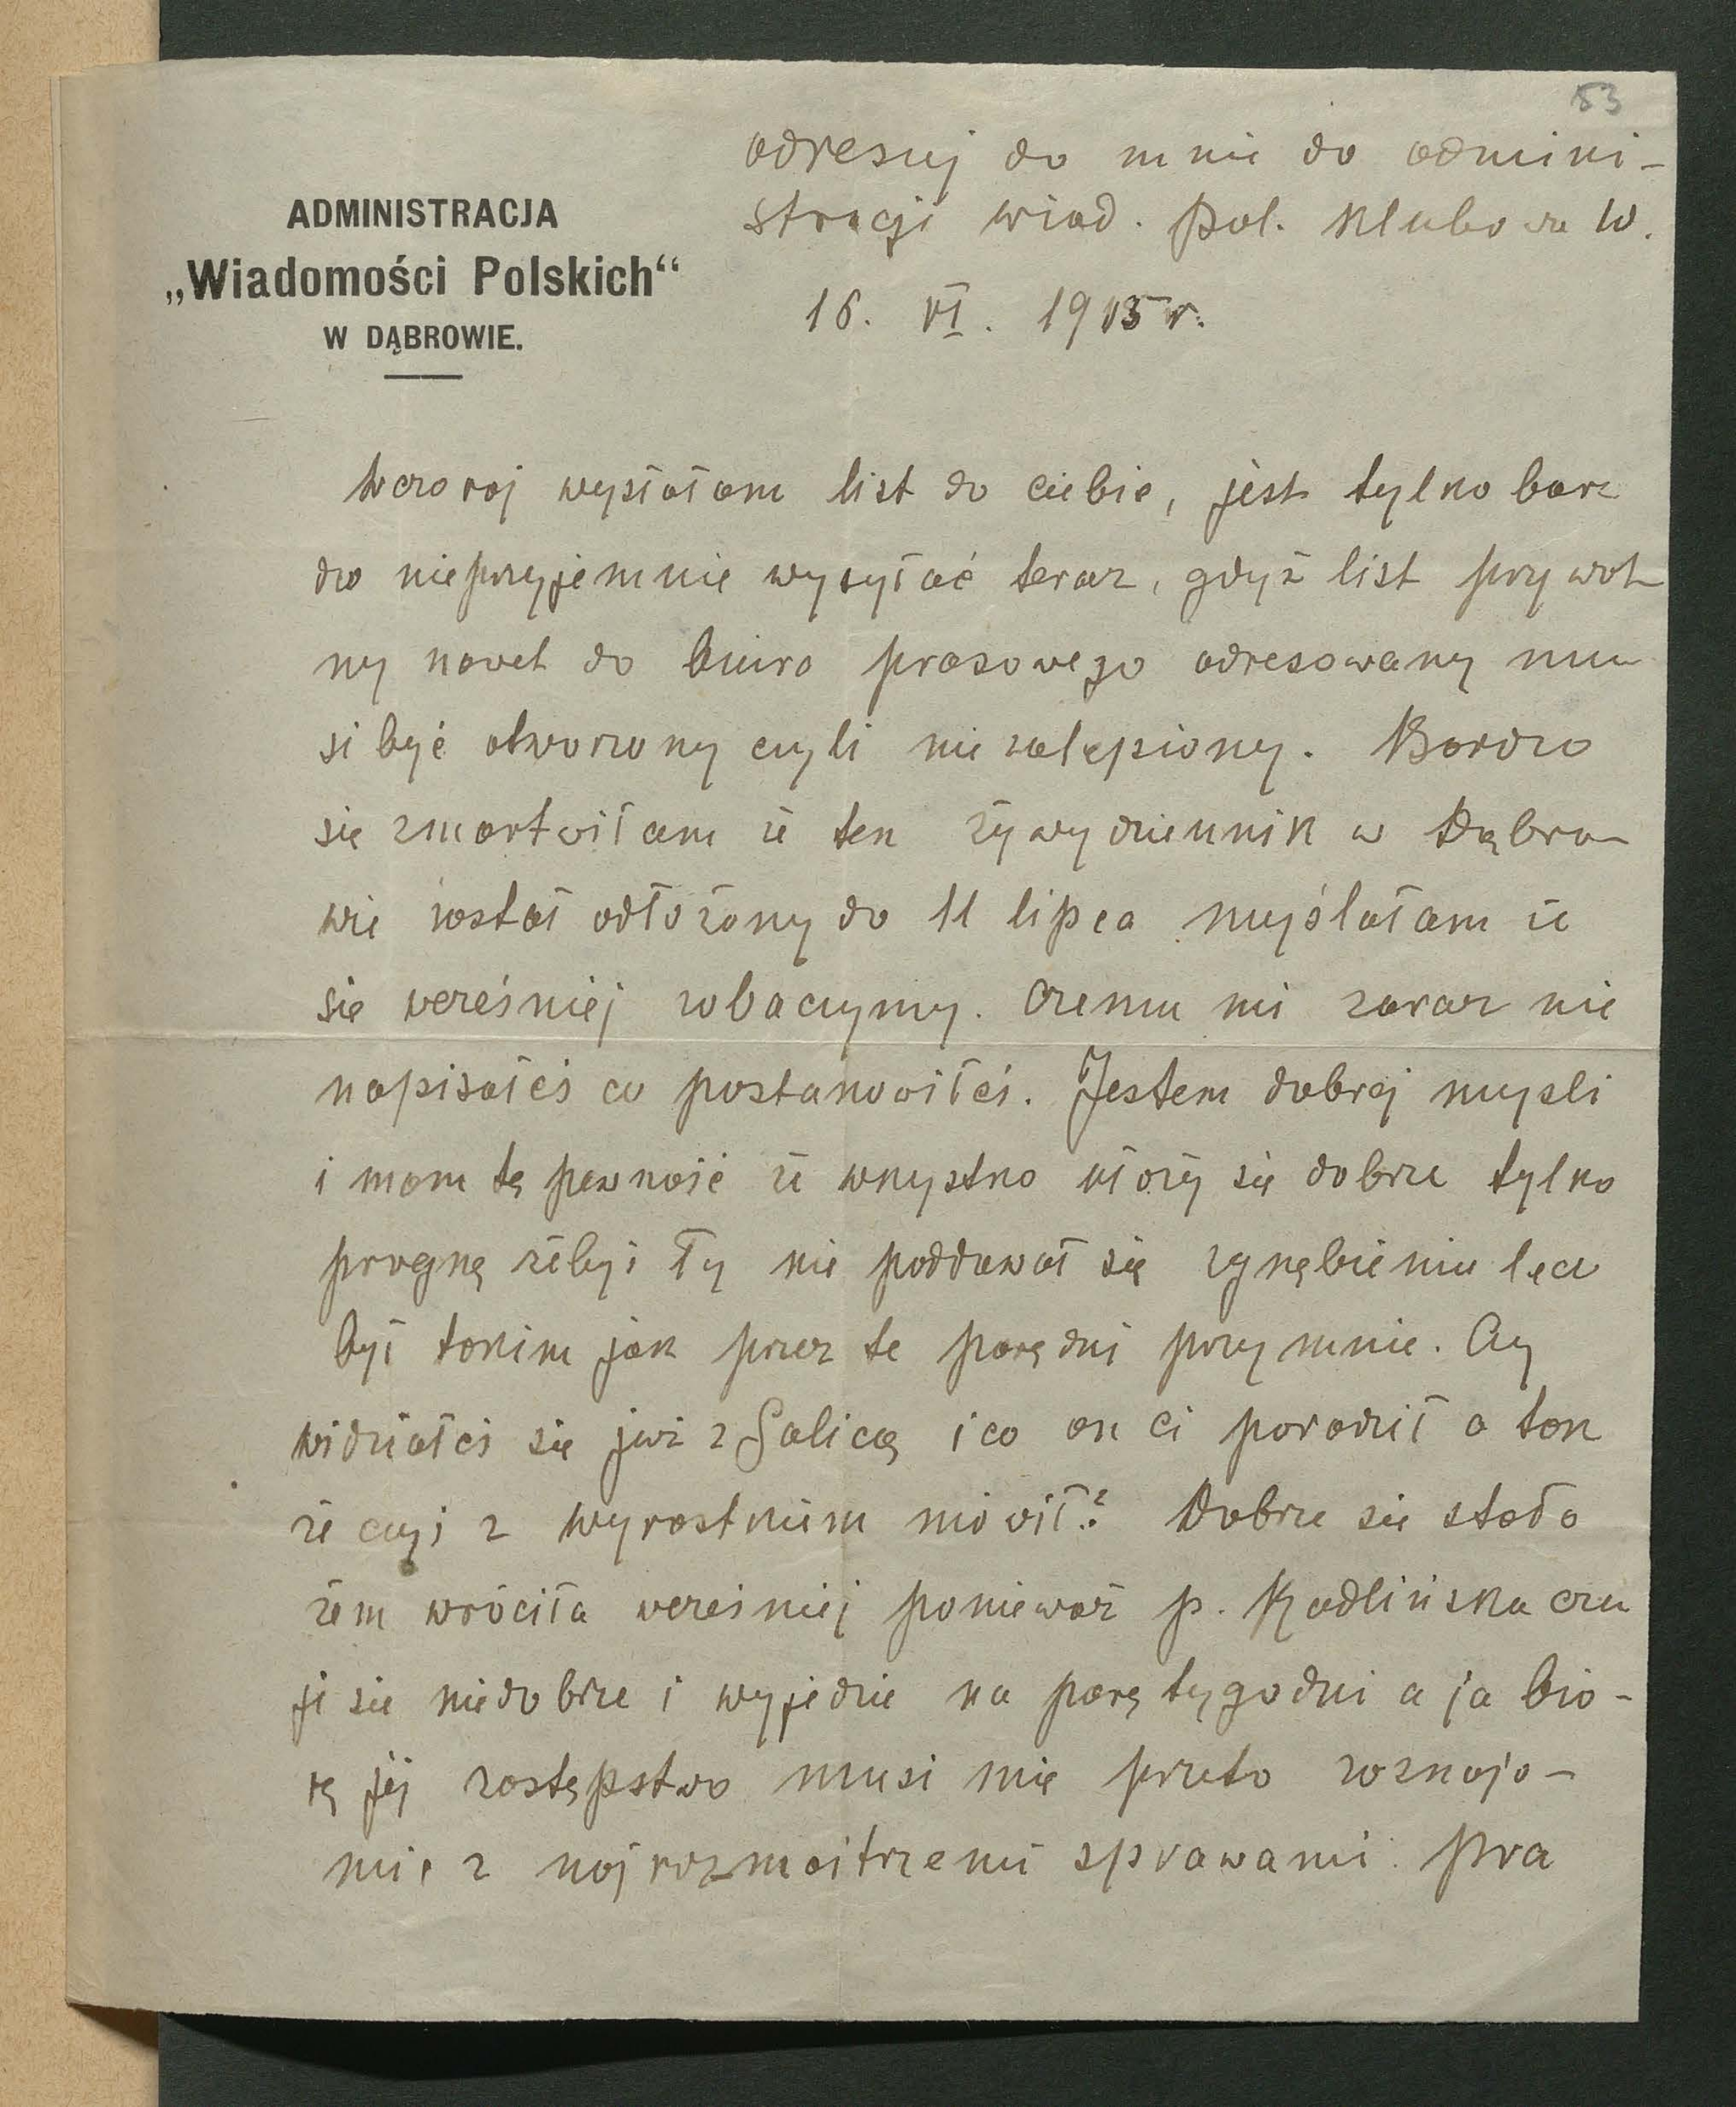 83
adresuj do mnie do admini-
stracji wiad. Pol. Klubowa 10.
ADMINISTRACJA
„Wiadomości Polskich“
W DĄBROWIE.
16. VI. 1915 r.
Wczoraj wysłałam list do ciebie, jest tylko bar
dzo nieprzyjemnie wysyłać teraz, gdyż list prywat
ny nawet do biura prasowego adresowany mu
si być otworzony czyli nie zalepiony. Bardzo
się zmartwiłam że ten żywy dziennik w Dąbro
wie został odłożony do 11 lipca myślałam że
się wcześniej zobaczymy. Czemu mi zaraz nie
napisałeś co postanowiłeś. Jestem dobrej mysli
i mam tę pewność że wszystko ułoży się dobrze tylko
pragnę żebyś Ty nie poddawał się zgnębieniu lecz
był takim jak przez te parę dni przy mnie. Czy
widziałeś się już z Galicą i co on ci poradził a tak
że czyś z Wyrostkiem mówił? Dobrze się stało
żem wróciła wcześniej ponieważ p. Radlińska czu
je się niedobrze i wyjedzie na parę tygodni a ja bio-
rę jej zastępstwo musi mię przeto zaznajo-
mić z najrozmaitrzemi sprawami. Pra